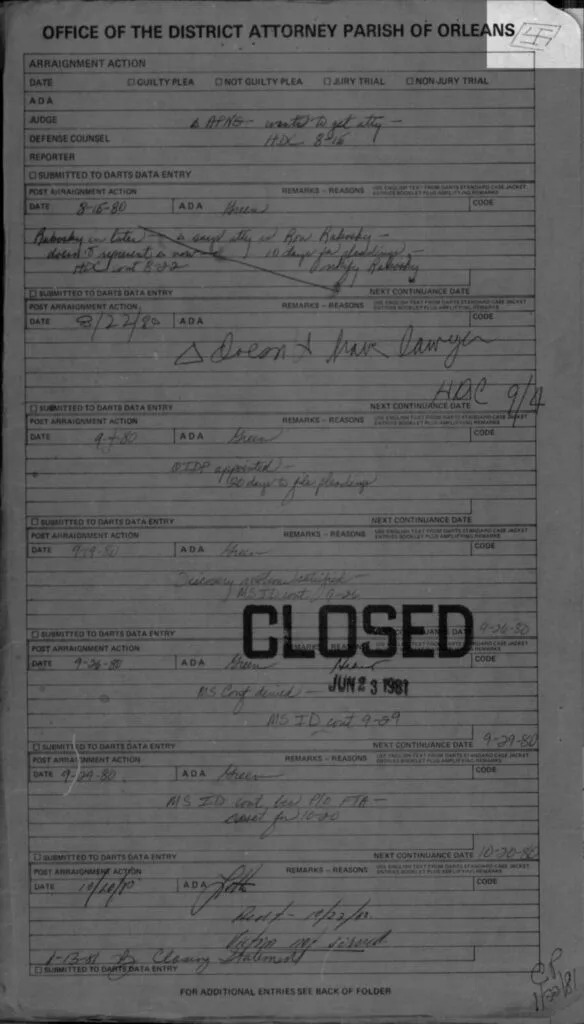 OFFICE OF THE DISTRICT ATTORNEY PARISH OF ORLEANS
ARRAIGNMENT ACTION
DATE ☐ GUILTY PLEA ☐ NOT GUILTY PLEA ☐ JURY TRIAL ☐ NON-JURY TRIAL
ADA
JUDGE
Δ APNG - wanted to get atty -
DEFENSE COUNSEL HDC 8-15
REPORTER
☐ SUBMITTED TO DARTS DATA ENTRY
POST ARRAIGNMENT ACTION REMARKS - REASONS USE ENGLISH TEXT FROM DARTS STANDARD CASE JACKET
ENTRIES BOOKLET PLUS AMPLIFYING REMARKS
DATE 8-15-80 ADA Green CODE
Δ says atty is Ron Rakosky -
doesn't represent Δ now 10 days for pleadings -
HDC cont 8-22 notify Rakosky
☐ SUBMITTED TO DARTS DATA ENTRY NEXT CONTINUANCE DATE
POST ARRAIGNMENT ACTION REMARKS - REASONS USE ENGLISH TEXT FROM DARTS STANDARD CASE JACKET
ENTRIES BOOKLET PLUS AMPLIFYING REMARKS
DATE 8/22/80 ADA CODE
Δ Doesn't have lawyer
HDC 9/4
☐ SUBMITTED TO DARTS DATA ENTRY NEXT CONTINUANCE DATE
POST ARRAIGNMENT ACTION REMARKS - REASONS USE ENGLISH TEXT FROM DARTS STANDARD CASE JACKET
ENTRIES BOOKLET PLUS AMPLIFYING REMARKS
DATE 9-4-80 ADA Green CODE
OIDP appointed -
days to file pleadings
☐ SUBMITTED TO DARTS DATA ENTRY NEXT CONTINUANCE DATE
POST ARRAIGNMENT ACTION REMARKS - REASONS USE ENGLISH TEXT FROM DARTS STANDARD CASE JACKET
ENTRIES BOOKLET PLUS AMPLIFYING REMARKS
DATE 9-19-80 ADA Green CODE
Discovery motion satisfied -
MS ID cont 9-26
CLOSED
☐ SUBMITTED TO DARTS DATA ENTRY CONTINUANCE DATE 9-26-80
POST ARRAIGNMENT ACTION REMARKS - REASONS STANDARD CASE JACKET
REMARKS
DATE 9-26-80 ADA Green CODE
JUN 23 1981
MS Conf denied -
MS ID cont 9-29
☐ SUBMITTED TO DARTS DATA ENTRY NEXT CONTINUANCE DATE 9-29-80
POST ARRAIGNMENT ACTION REMARKS - REASONS USE ENGLISH TEXT FROM DARTS STANDARD CASE JACKET
ENTRIES BOOKLET PLUS AMPLIFYING REMARKS
DATE 9-29-80 ADA Green CODE
MS ID cont bec P/O FTA -
reset for 10-20
☐ SUBMITTED TO DARTS DATA ENTRY NEXT CONTINUANCE DATE 10-20-80
POST ARRAIGNMENT ACTION REMARKS - REASONS USE ENGLISH TEXT FROM DARTS STANDARD CASE JACKET
ENTRIES BOOKLET PLUS AMPLIFYING REMARKS
DATE 10/20/80 ADA CODE
10/22/80
Victim not served
Closing Statement
☐ SUBMITTED TO DARTS DATA ENTRY
1/22/81
FOR ADDITIONAL ENTRIES SEE BACK OF FOLDER